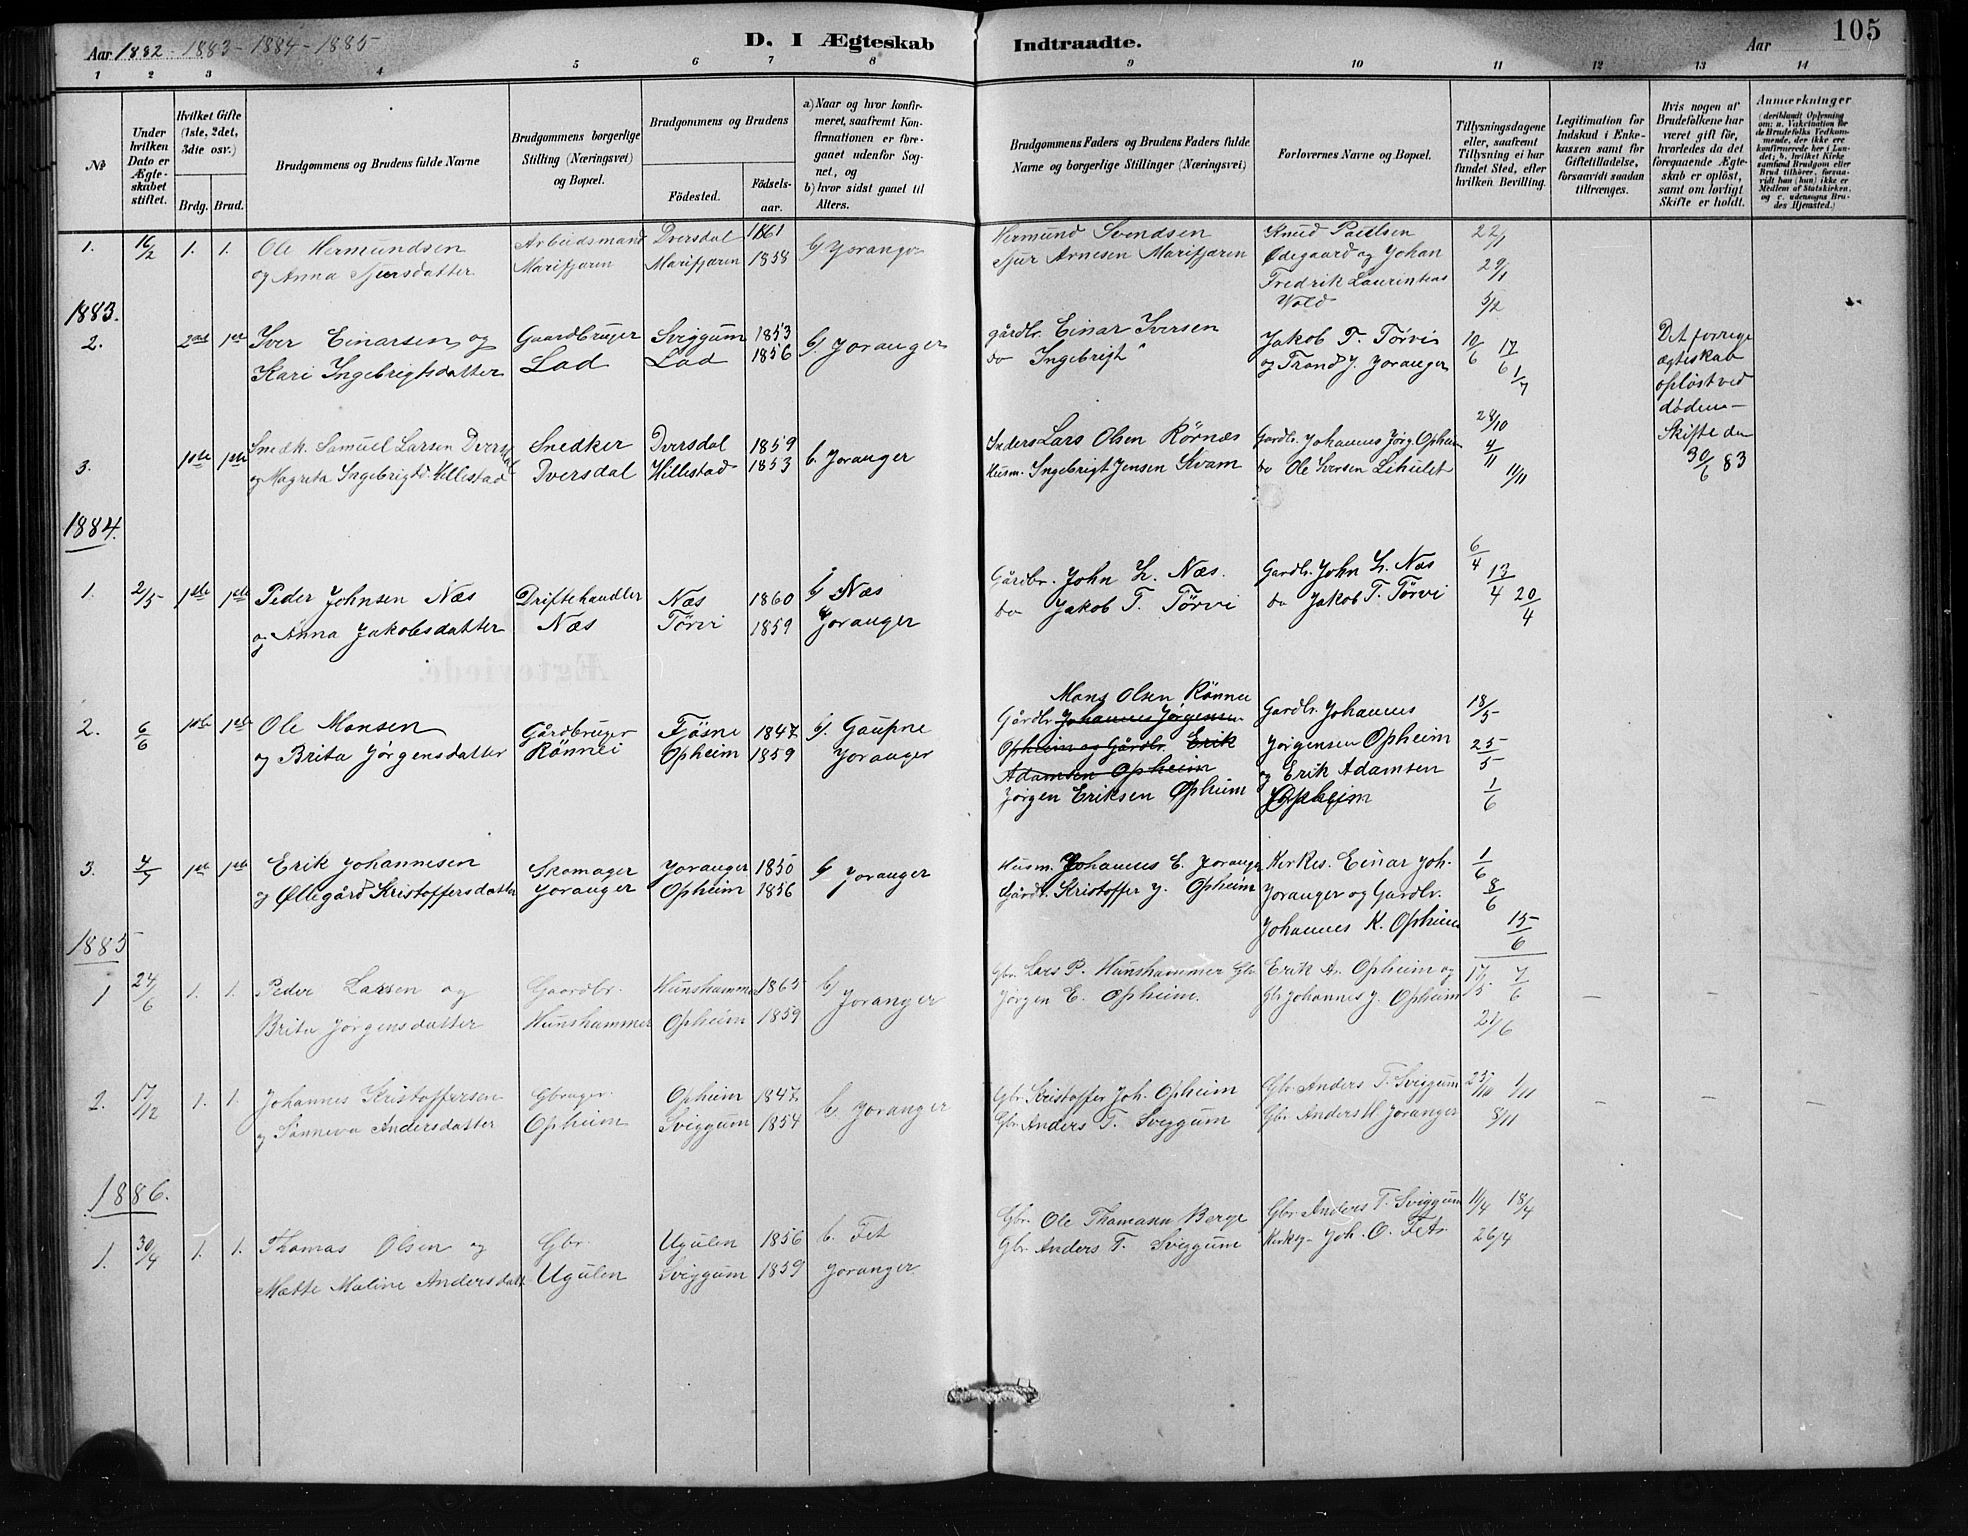 Aar 1882 - 1883 - 1884 - 1885
D. I Ægteskab Indtraadte.
Aar
105
1 2 3 4 5 6 7 8 9 10 11 12 13 14
№
Under hvilken Dato er Ægteskabet stiftet.
Hvilket Gifte (1ste, 2det, 3die osv.)
Brdg. Brud.
Brudgommens og Brudens fulde Navne
Brudgommens borgerlige Stilling (Næringsvei) og Bopæl.
Brudgommens og Brudens
Födested. Födselsaar.
a) Naar og hvor konfirmeret, saafremt Konfirmationen er foregaaet udenfor Sognet, og
b) hvor sidst gaaet til Alters.
Brudgommens Faders og Brudens Faders fulde Navne og borgerlige Stillinger (Næringsvei)
Forlovernes Navne og Bopæl.
Tillysningsdagene eller, saafremt Tillysning ei har fundet Sted, efter hvilken Bevilling.
Legitimation for Indskud i Enkekassen samt for Giftetilladelse, forsaavidt saadan tiltrænges.
Hvis nogen af Brudefolkene har været gift för, hvorledes da det foregaaende Ægteskab er oplöst, samt om lovligt Skifte er holdt.
Anmærkninger
(deriblandt Oplysning om: a. Vakcination for de Brudefolks Vedkommende, der ikke ere konfirmerede her i Landet; b. hvilket Kirkesamfund Brudgom eller Brud tilhörer, forsaavidt han (hun) ikke er Medlem af Statskirken, og c. udensogns Brudes Hjemsted.)
1. 16/2 1. 1. Ole Hermundsen Arbeidsmand Dversdal 1861 b) Joranger Hermund Svendsen Knud Paulsen 22/1
og Anna Sjursdatter Marifjæren Marifjæren 1858 Sjur Arnesen Marifjæren Ødegaard og Johan 29/1
Fredrik Laurintius
Wold 5/2
1883.
2. 2det 1ste Iver Einarsen og Gaardbruger Sviggum 1853 b). Joranger gårdbr. Einar Iversen Jakob T. Törvi 10/6 17/6
Kari Ingebrigtsdatter Lad Lad 1856 do Ingebrigt " og Trond J. Joranger 1/7
Det forrige
ægteskab
opløst ved
døden -
Skifte den
30/6 83
3. 1ste 1ste Snedk. Samuel Larsen Dversdal Snedker Dversdal 1859 b. Joranger Inderst Lars Olsen Rörnæs Gardbr. Johannes Jörg. Opheim 28/10
og Magreta Ingebrigtsd. Hillestad Dversdal Hillestad 1853 Husm. Ingebrigt Jensen Kvam do Ole Iversen Lihulet 4/11 11/11
1884.
1. 2/5 1ste 1ste Peder Johnsen Næs Driftehandler Næs 1860 b) Næs Gårdbr. John L. Næs. Gardbr. John L. Næs 6/4 13/4
og Anna Jakobsdatter Næs Törvi 1859 Joranger do Jakob T. Törvi do Jakob T. Törvi 20/4
2. 6/6 1ste 1ste Ole Monsen Gårdbruger Fjøsne 1847 b). Gaupne Mons Olsen Rönnei
og Brita Jørgensdatter Rönnei Opheim 1859 Joranger Gårdbr. Johannes Jørgensen Gardbr. Johannes 18/5
Opheim og Gårdbr. Erik Jørgensen Opheim 25/5
Adamsen Opheim og Erik Adamsen
Jørgen Eriksen Opheim Opheim 1/6
3. 4/7 1ste 1ste Erik Johannesen Skomager Joranger 1850 b) Joranger Husm. Johannes E. Joranger Kirkes. Einar Joh. 1/6
og Øllegård Kristoffersdatter Joranger Opheim 1856 Gårdbr. Kristoffer J. Opheim Joranger og Gardbr. 8/6
Johannes K. Opheim 15/6
1885
1 24/6 1. 1. Peder Larsen og Gaardbr. Hunshammer 1865 b) Joranger Gbr. Lars P. Hunshammer Gbr. Erik A. Opheim og 17/5 7/6 - - -
Brita Jørgensdatter Hunshammer Opheim 1859 Jörgen E. Opheim. Gbr Johannes J. Opheim 21/6
2. 17/12 1. 1. Johannes Kristoffersen Gbruger. Opheim 1847 b) Joranger Gbr Kristoffer Joh. Opheim Gbr. Anders T. Sviggum 25/10 1/11 - - -
og Sönneva Andersdatter Opheim Sviggum 1854 Gbr Anders T. Sviggum Gbr Anders H. Joranger 8/11
1886.
1. 30/4 1. 1. Thomas Olsen og Gbr. Ugulen 1856 b. Fet Gbr. Ole Thamann Berge Gbr Anders T. Sviggum 11/4 18/4
Mætte Maline Andersdatt. Ugulen Sviggum 1859 Joranger Gbr Anders T. Sviggum Kirkesg. Joh. O. Fet 26/4